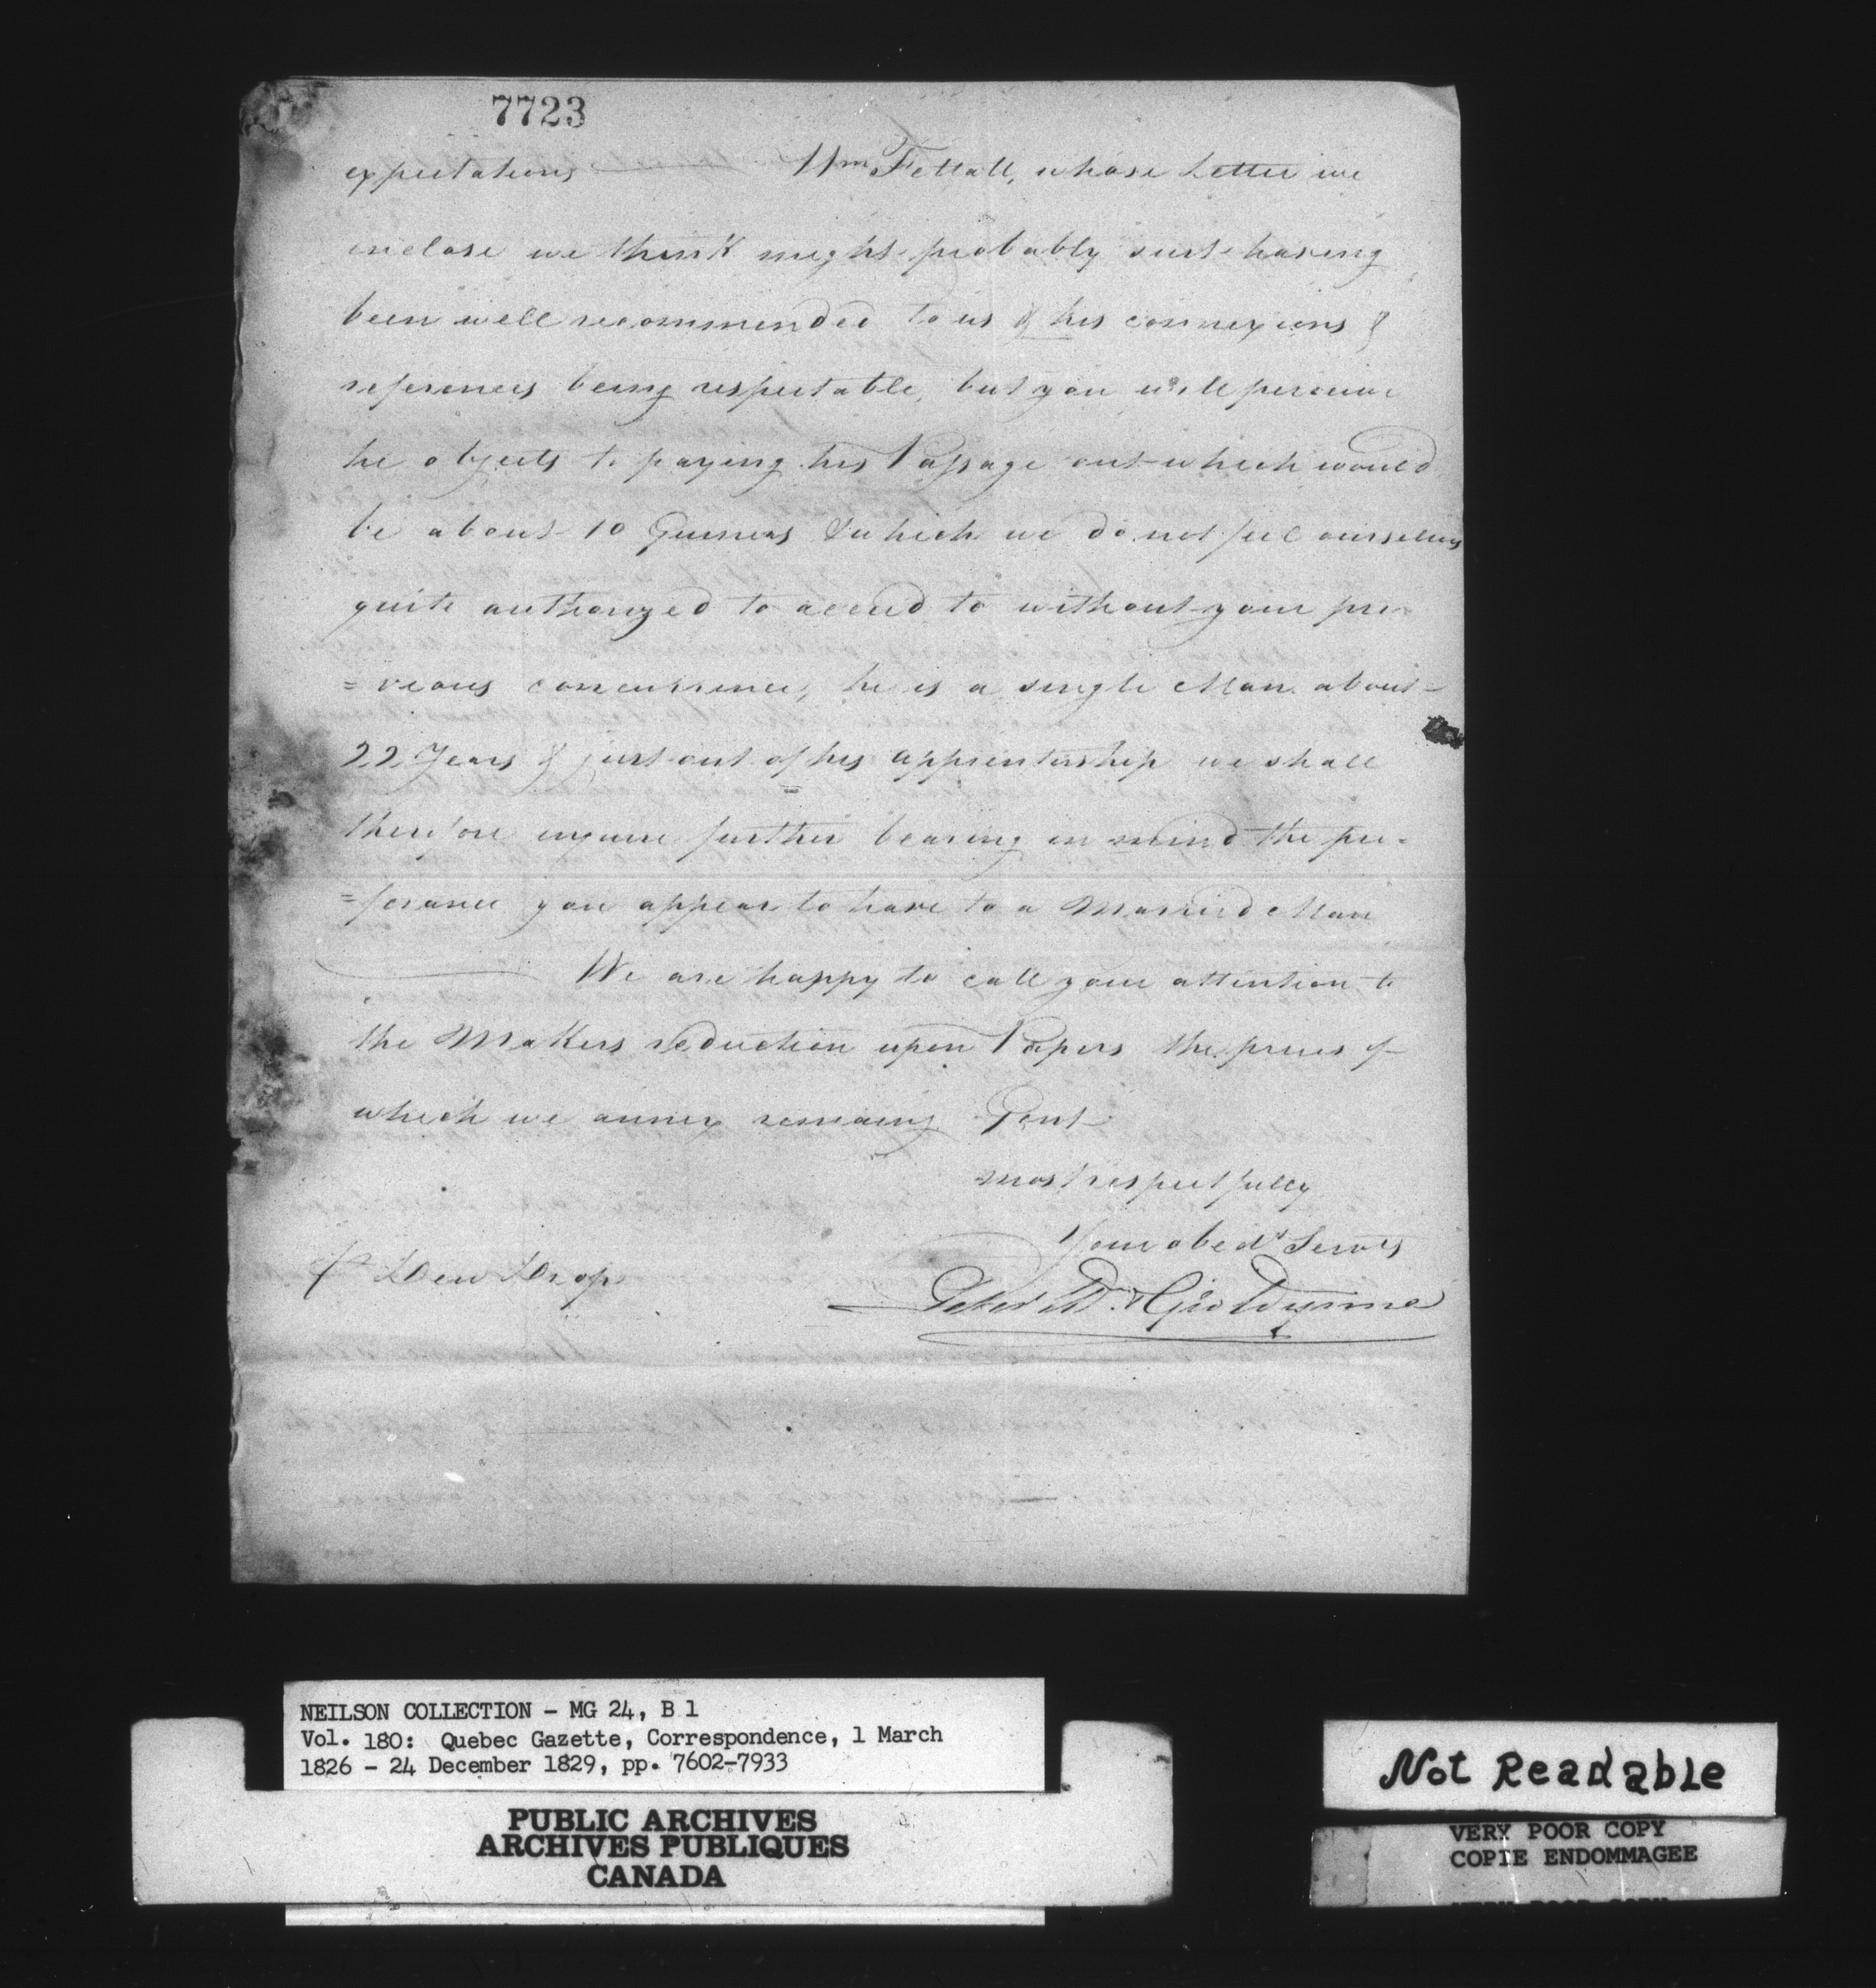 7723
expectations Wm Fettall, whose Letter we
enclose we think might probably suit having
been well recommended to us & his connexions &
references being respectable, but you will perceive
he objects to paying his Passage out which would
be about 10 Guineas & which we do not feel ourselves
quite authorized to accede to without your pre-
=vious concurrence, he is a single Man about
22 Years & just out of his apprenticeship we shall
therefore enquire further bearing in mind the pre-
=ferance you appear to have to a Married Man
We are happy to call your attention to
the Makers reduction upon Papers the prices of
which we annex remaing Gent
most respectfully
Your obedt Servts
P Dew Drop
Peter W. & Geo Wynne
NEILSON COLLECTION - MG 24, B 1
Vol. 180: Quebec Gazette, Correspondence, 1 March
1826 - 24 December 1829, pp. 7602-7933
PUBLIC ARCHIVES
ARCHIVES PUBLIQUES
CANADA
Not Readable
VERY POOR COPY
COPIE ENDOMMAGEE